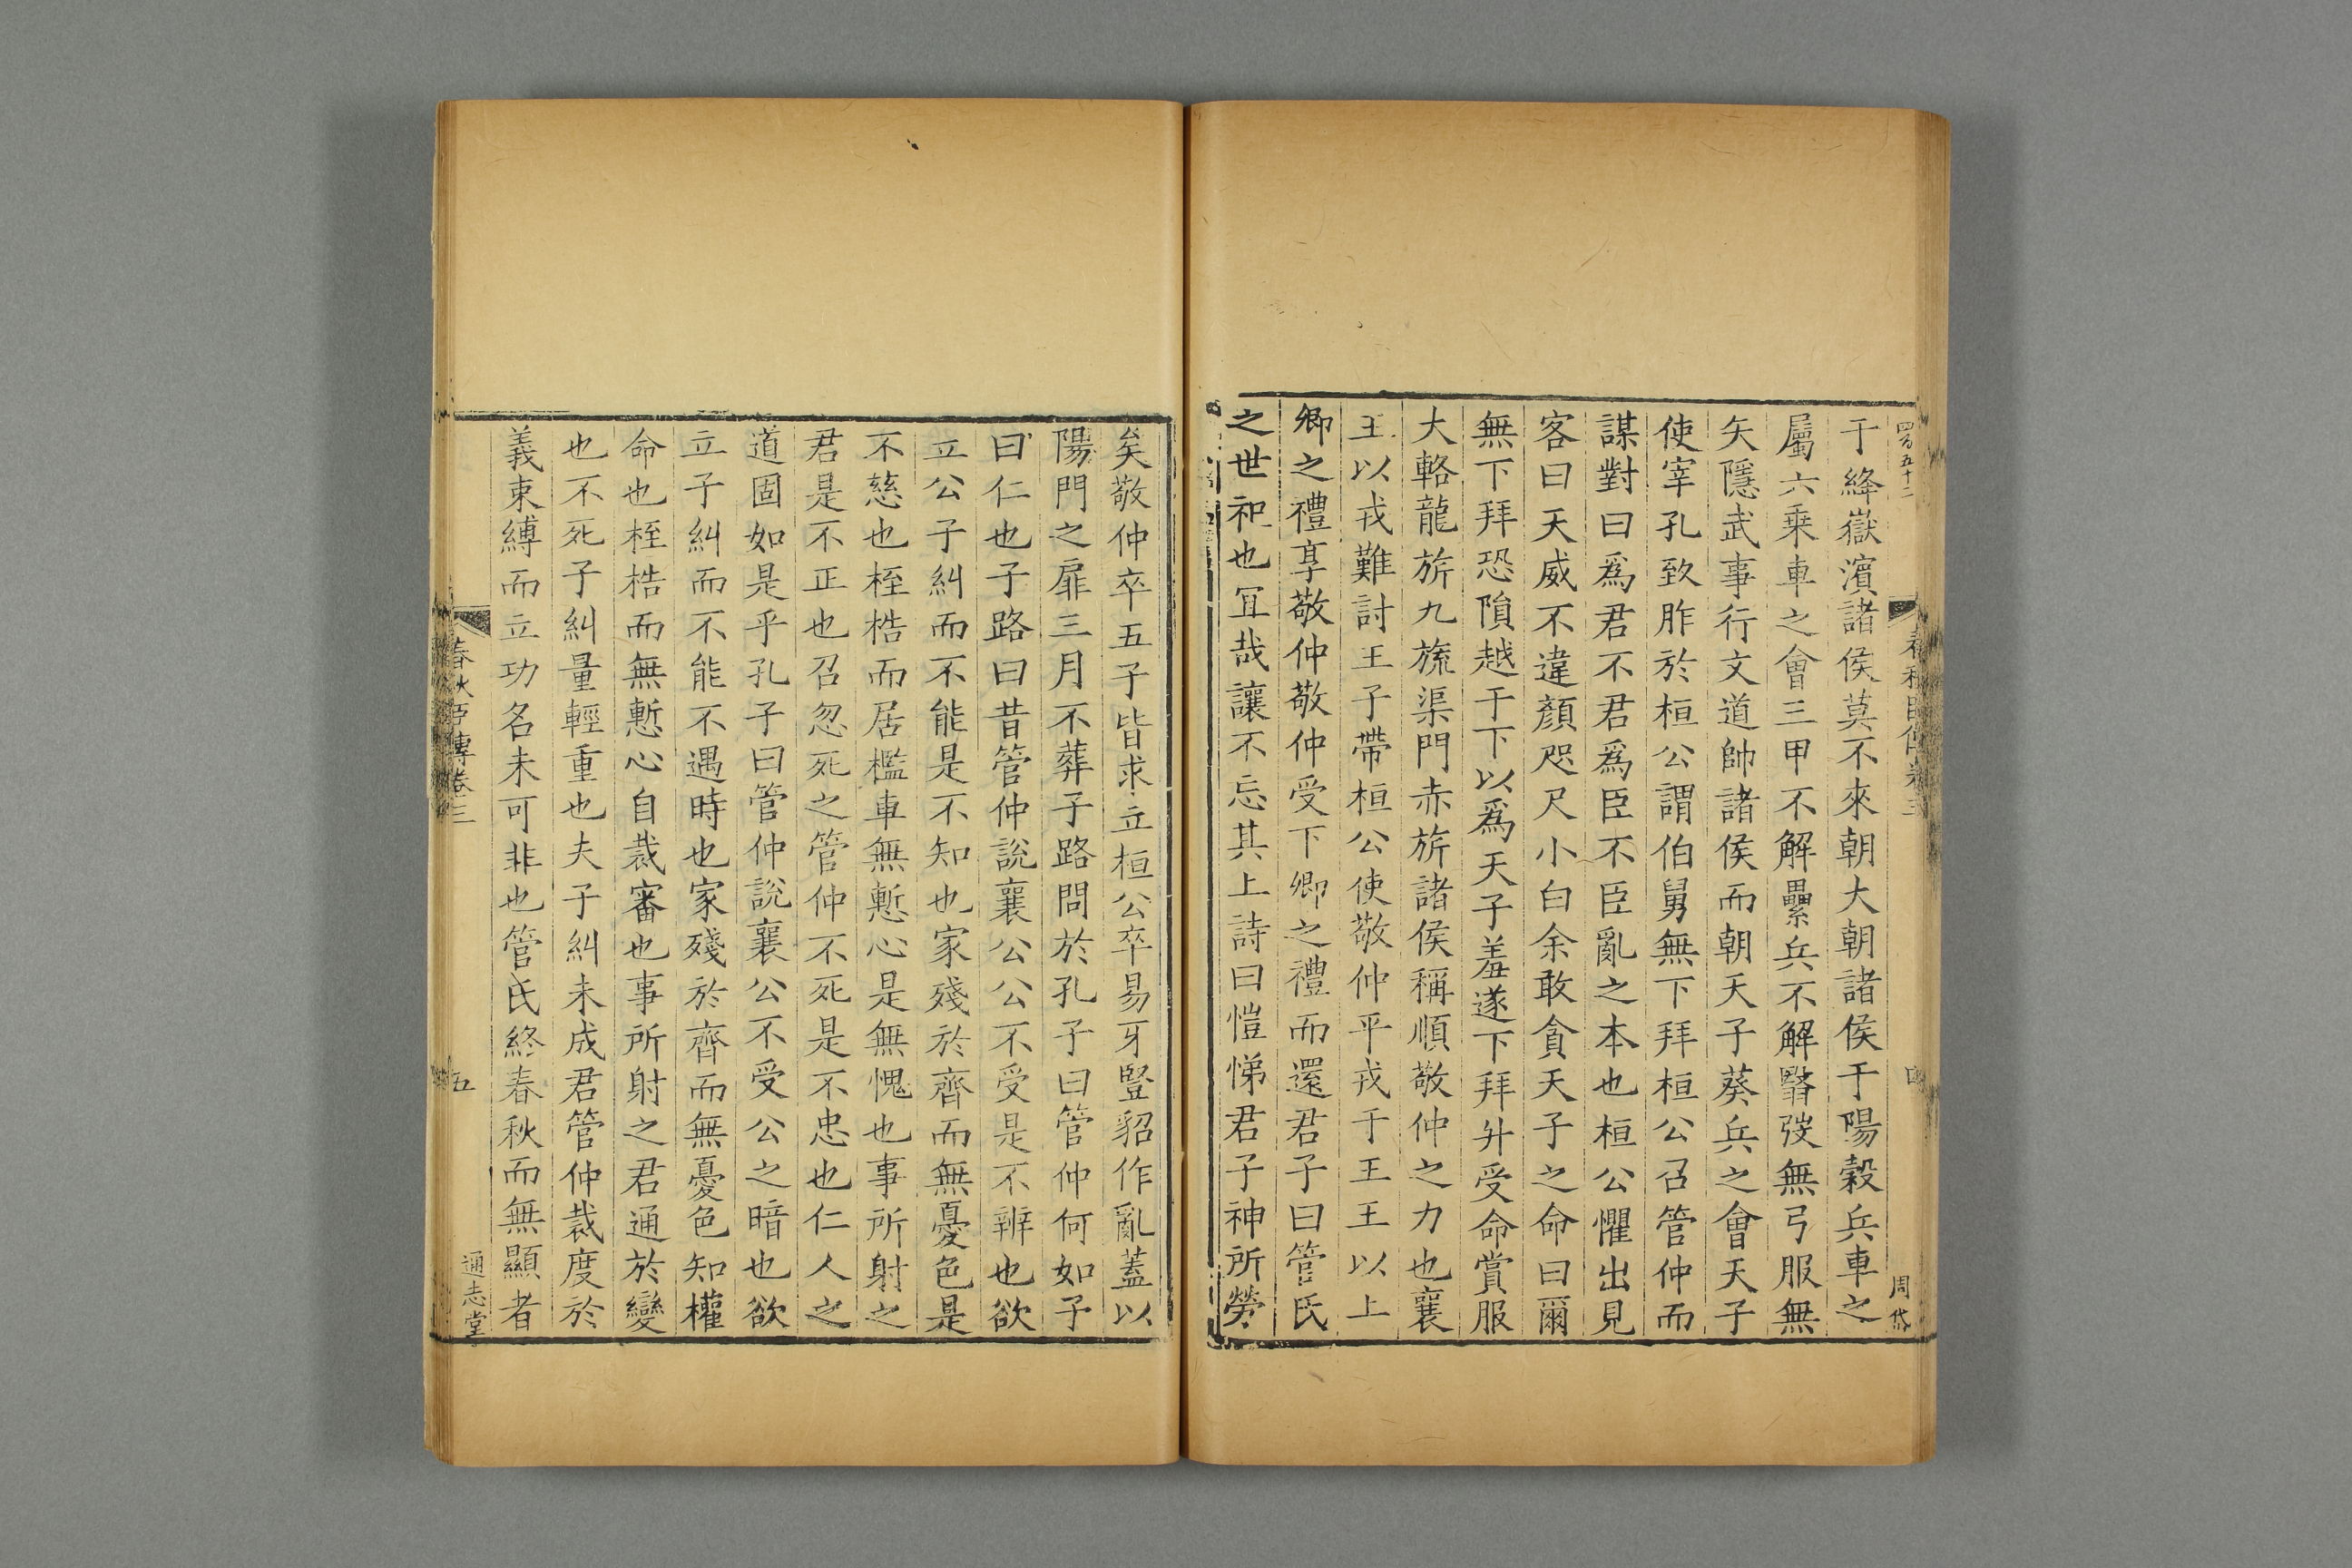 四百五十二
春秋臣傳卷三
四
周岱
于絳嶽濱諸侯莫不來朝大朝諸侯于陽穀兵車之
屬六乘車之會三甲不解壘兵不解翳弢無弓服無
矢隱武事行文道帥諸侯而朝天子葵兵之會天子
使宰孔致胙於桓公謂伯舅無下拜桓公召管仲而
謀對曰爲君不君爲臣不臣亂之本也桓公懼出見
客曰天威不違顏咫尺小白余敢貪天子之命曰爾
無下拜恐隕越于下以爲天子羞遂下拜升受命賞服
大輅龍旂九旒渠門赤旂諸侯稱順敬仲之力也襄
王以戎難討王子帶桓公使敬仲平戎于王王以上
卿之禮享敬仲敬仲受下卿之禮而還君子曰管氏
之世祀也冝哉讓不忘其上詩曰愷悌君子神所勞
矣敬仲卒五子皆求立桓公卒易牙豎貂作亂蓋以
陽門之扉三月不葬子路問於孔子曰管仲何如子
曰仁也子路曰昔管仲說襄公公不受是不辨也欲
立公子糾而不能是不知也家殘於齊而無憂色是
不慈也桎梏而居檻車無慙心是無愧也事所射之
君是不正也召忽死之管仲不死是不忠也仁人之
道固如是乎孔子曰管仲說襄公不受公之暗也欲
立子糾而不能不遇時也家殘於齊而無憂色知權
命也桎梏而無慙心自裁審也事所射之君通於變
也不死子糾量輕重也夫子糾未成君管仲裁度於
義束縛而立功名未可非也管氏終春秋而無顯者
春秋臣傳卷三
五
通志堂